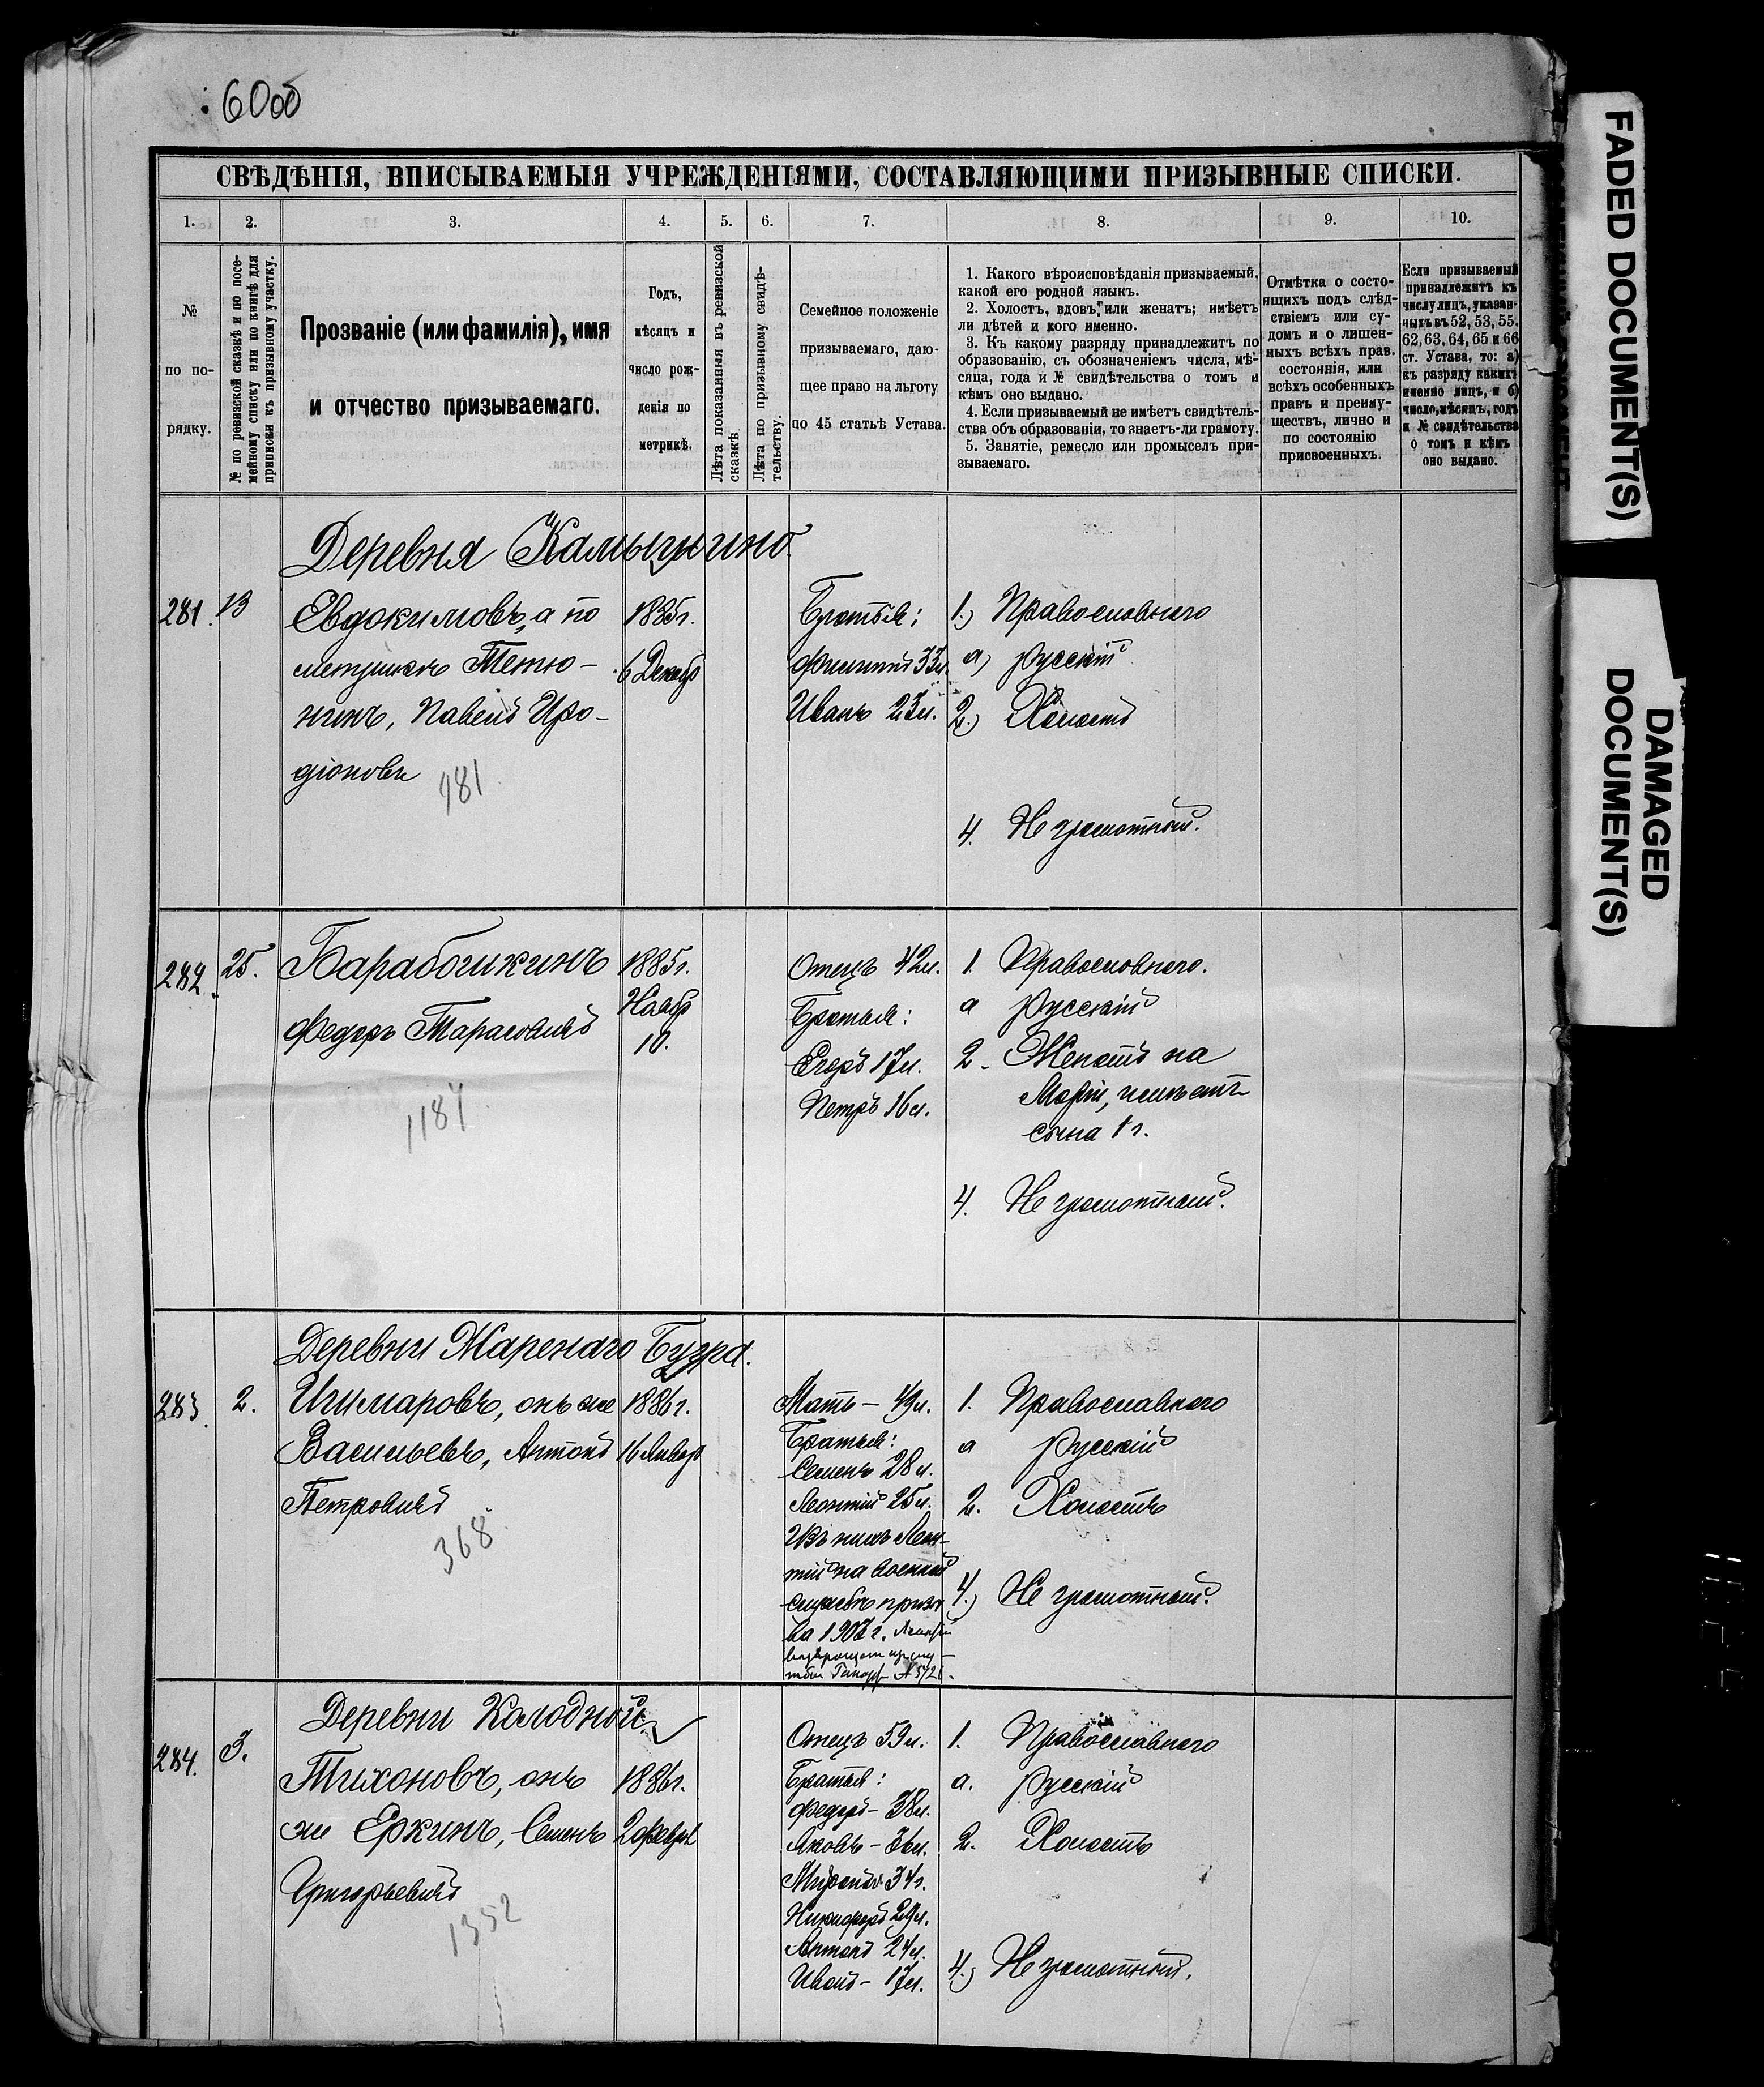 60об
СВѢДѢНІЯ, ВПИСЫВАЕМЫЯ УЧРЕЖДЕНІЯМИ, СОСТАВЛЯЮЩИМИ ПРИЗЫВНЫЕ СПИСКИ.
1. 2. 3. 4. 5. 6. 7. 8. 9. 10.
№
по по-
рядку.
№ по ревизской сказкѣ и по посе-
мейному списку или по книгѣ для
приписки къ призывному участку.
Прозваніе (или фамилія), имя
и отчество призываемаго.
Годъ,
мѣсяцъ и
число рож-
денія по
метрикѣ.
Лѣта показанныя въ ревизской
сказкѣ.
Лѣта по призывному свидѣ-
тельству.
Семейное положеніе
призываемаго, даю-
щее право на льготу
по 45 статьѣ Устава.
1. Какого вѣроисповѣданія призываемый,
какой его родной языкъ.
2. Холостъ, вдовъ, или женатъ; имѣетъ
ли дѣтей и кого именно.
3. Къ какому разряду принадлежитъ по
образованію, съ обозначеніемъ числа, мѣ-
сяца, года и № свидѣтельства о томъ и
кѣмъ оно выдано.
4. Если призываемый не имѣетъ свидѣтель-
ства объ образованіи, то знаетъ-ли грамоту.
5. Занятіе, ремесло или промыселъ при-
зываемаго.
Отмѣтка о состо-
ящихъ подъ слѣд-
ствіемъ или су-
домъ и о лишен-
ныхъ всѣхъ прав.
состоянія, или
всѣхъ особенныхъ
правъ и преиму-
ществъ, лично и
по состоянію
присвоенныхъ.
Если призываемый
принадлежитъ къ
числу лицъ, указан-
ныхъ въ 52, 53, 55.
62, 63, 64, 65 и 66
ст. Устава, то: а)
къ разряду какихъ
именно лицъ, и б)
число, мѣсяцъ, годъ
и № свидѣтельства
о томъ и кѣмъ
оно выдано.
Деревня
281. 13
Евдокимовъ, а по
Тетю-
нинъ, Павелъ Иро-
діоновъ
981
1885г.
6 Декабр
Братья:
Филиппъ 33л.
Иванъ 23л.
1.) Православнаго
а) русскій
2.) Холостъ
4. Не грамотный.
282. 25.
Барабошкинъ
Федоръ Тарасовичъ
1187
1885г.
Ноябр
10.
Отецъ 42л.
Братья:
Егоръ 17л.
Петръ 16л.
1. Православнаго.
а русскій
2. Женатъ на
Маріи, имѣетъ
сына 1 г.
4. Не грамотный.
Деревни Жаренаго Бугра.
283. 2.
Ишмаровъ, онъ же
Васильевъ, Антонъ
Петровичъ
368
1886г.
16 Январ
Мать - 49л.
Братья:
Семенъ 28л.
Леонтій 25л.
Изъ нихъ Леон-
тій на военной
службѣ призы
ва 1902г.
1. Православнаго
а русскій
2. Холостъ
4.) Не грамотный.
Деревни Колодной.
284. 3.
Тихоновъ, онъ
же Еркинъ, Семенъ
Григорьевичъ
1352
1886г.
2 Февр
Отецъ 59л.
Братья:
Федоръ - 38л.
Яковъ - 36л.
Миронъ 34г.
Никифоръ 29л.
Антонъ 24л.
Иванъ - 17л.
1. Православнаго
а. русскій
2. Холостъ
4.) Не грамотный.
FADED DOCUMENT(S)
DAMAGED
DOCUMENT(S)